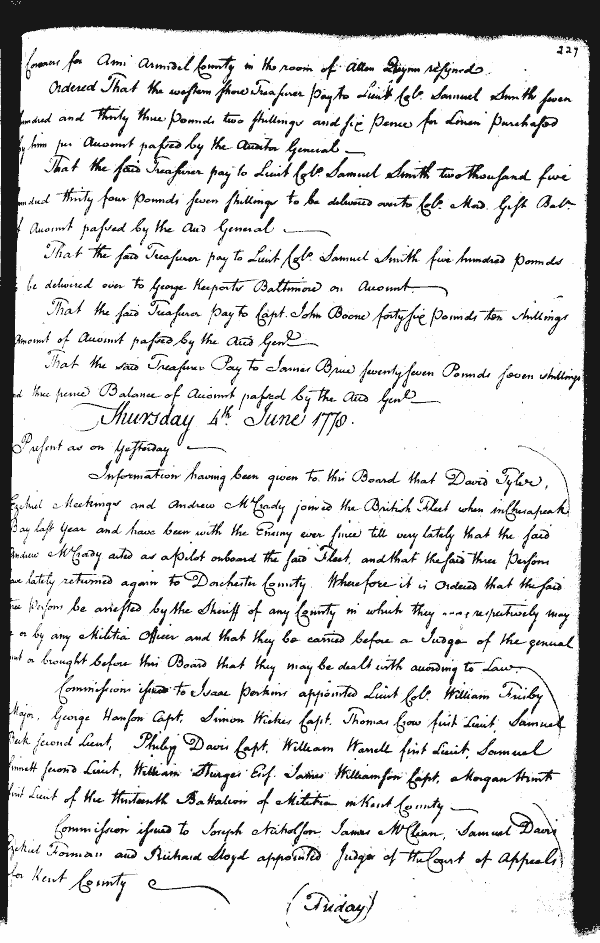 227
Coroner for Ann Arundel County in the room of Allen Quynn resigned
Ordered That the western shore Treasurer pay to Lieut Colo. Samuel Smith seven
hundred and thirty three pounds two shillings and six pence for Linen purchased
by him per Account passed by the Auditor General
That the said Treasurer pay to Lieut Colo. Samuel Smith two thousand five
hundred thirty four pounds seven shillings to be delivered over to Colo. Mord. Gist Balce
of Account passed by the Aud General
That the said Treasurer pay to Lieut Colo. Samuel Smith five hundred pounds
to be delivered over to George Keeports Baltimore on Account
That the said Treasurer pay to Capt. John Boone forty six pounds ten shillings
Amount of Account passed by the Aud Genl.
That the said Treasurer Pay to James Brice seventy seven Pounds seven shillings
and three pence Balance of Account passed by the Aud Genl.
Thursday 4th June 1778.
Present as on Yesterday
Information having been given to this Board that David Tyler,
Ezekiel Meekings and Andrew McCrady joined the British Fleet when in Chesapeak
Bay last Year and have been with the Enemy ever since till very lately that the said
Andrew McCrady acted as a Pilot onboard the said Fleet, and that the said three Persons
have lately returned again to Dorchester County. Wherefore it is Ordered that the said
three Persons be arrested by the Sheriff of any County in which they respectively may
be or by any Militia Officer and that they be carried before a Judge of the general
Court or brought before this Board that they may be dealt with according to Law
Commissions issued to Isaac Perkins appointed Lieut Colo. William Frisby
Major, George Hanson Capt. Simon Wickes Capt. Thomas Crow first Lieut. Samuel
Beck second Lieut, Philip Davis Capt. William Warrell first Lieut, Samuel
second Lieut, William Sturges Ens. James Williamson Capt, Morgan
first Lieut of the thirteenth Battalion of Militia in Kent County
Commission issued to Joseph Nicholson, James McClean, Samuel Davis
Ezekiel Forman and Richard Lloyd appointed Judges of the Court of Appeals
for Kent County
(Friday)